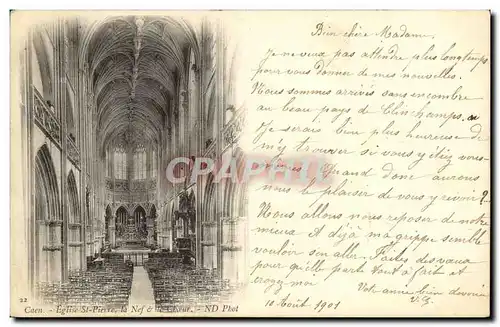 Bien chère Madame,
Je ne veux pas attendre plus longtemps
pour vous donner de mes nouvelles.
Nous sommes arrivés sans encombre
au beau pays de Clinchamps, où
Je serais bien plus heureuse de
m'y trouver si vous y étiez vous-
Quand donc aurons
nous le plaisir de vous y revoir?
Nous allons nous reposer de notre
mieux et déjà ma grippe semble
vouloir s'en aller. Faites des vœux
pour qu'elle parte tout à fait et
croyez-moi
Votre bien
10 Août 1901
CPARAMA
22
Caen. - Eglise St-Pierre, la Nef & le Chœur. - ND Phot